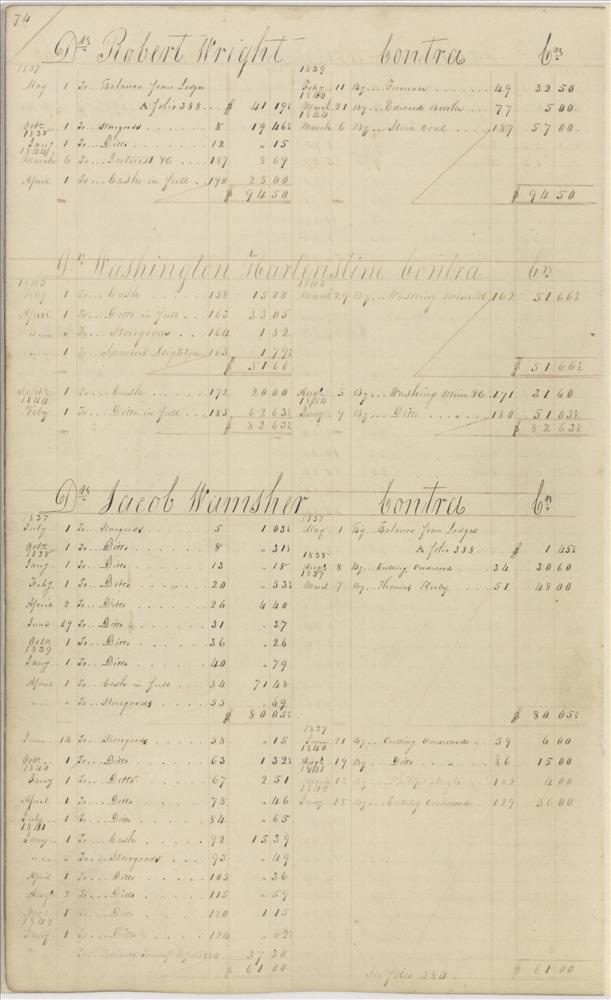 74
Drs Robert Wright Contra Crs
1837 1839
May 1 To Balance from Ledger Feby 11 By Furnace 49 32 50
1840
A folio 388 $ 41 19½ March 21 By Edward Brooke 77 5 00
1844
Octr 1 To Storegoods 8 19 46½ March 6 By Stone Coal 187 57 00
1838
Jany 1 To Ditto 12 " 15
1844
March 6 To Interest &c 187 8 69
April 1 To Cash in full 190 25 00
$ 94 50 $ 94 50
Dr Washington Hartenstine Contra Cr
1843 1843
Feby 1 To Cash 158 15 00 March 29 By Washing mine &c 162 51 66½
April 1 To Ditto in full 163 33 05
" " To Storegoods 164 1 82
" 1 To Samuel Leighton 165 1 79½
$ 51 66 $ 51 66½
Septr 1 To Cash 172 20 00 Augt 5 By Washing Mine &c 171 31 60
1844 1844
Feby 1 To Ditto in full 185 62 63½ Jany 9 By Ditto 180 51 03½
$ 82 63½ $ 82 63½
Drs Jacob Wamsher Contra Crs
1837 1837
July 1 To Storegoods 5 1 03½ May 1 By Balance from Ledger
Octr 1 To Ditto 8 " 31½ A folio 388 $ 1 45½
1838 1838
Jany 1 To Ditto 13 " 18 Augt 8 By Cutting Cordwood 34 30 60
1839
Feby 1 To Ditto 20 " 53½ March 7 By Thomas Rusby 51 48 00
April 2 To Ditto 26 4 40
June 29 To Ditto 31 " 37
Octr 1 To Ditto 36 " 26
1839
Jany 1 To Ditto 40 " 79
April 1 To Cash in full 54 71 48
" " To Storegoods 55 " 69
$ 80 05½ $ 80 05½
1839
June 14 To Storegoods 58 " 15 June 21 By Cutting Cordwood 59 6 00
1840
Octr 1 To Ditto 63 1 32½ Augt 19 By Ditto 86 15 00
1840 1841
Jany 1 To Ditto 67 2 51 13 By Philip 102 4 00
1842
April 1 To Ditto 78 " 46 Jany 18 By Cutting Cordwood 129 36 00
July 1 To Ditto 84 " 65
1841
Jany 1 To Cash 92 15 39
" " To Storegoods 93 " 49
April 1 To Ditto 105 " 36
Augt 2 To Ditto 115 " 59
Octr 1 To Ditto 120 1 15
1842
Jany 1 To Ditto 124 " 62½
To Balance Transfd to folio 284 37 30
$ 61 00 See folio 284 $ 61 00